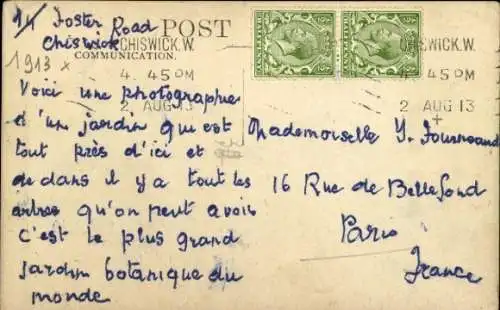 14 Foster Road
Chiswick
POST
COMMUNICATION.
CHISWICK.W.
4. 45 PM
2 AUG 13
CHISWICK.W.
4. 45 PM
2 AUG 13
1913 x
Voici une photographie
d'un jardin qui est
tout près d'ici et
de dans il y a tout les
arbres qu'on peut avoir
C'est le plus grand
jardin botanique du
monde
Mademoiselle Y.
16 Rue de Bellefond
Paris
France